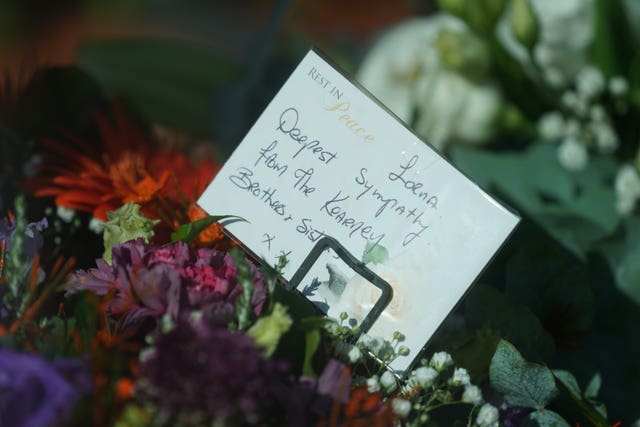 REST IN
Peace
Lorna
Deepest Sympathy
from The Kearney
Brothers &
x x